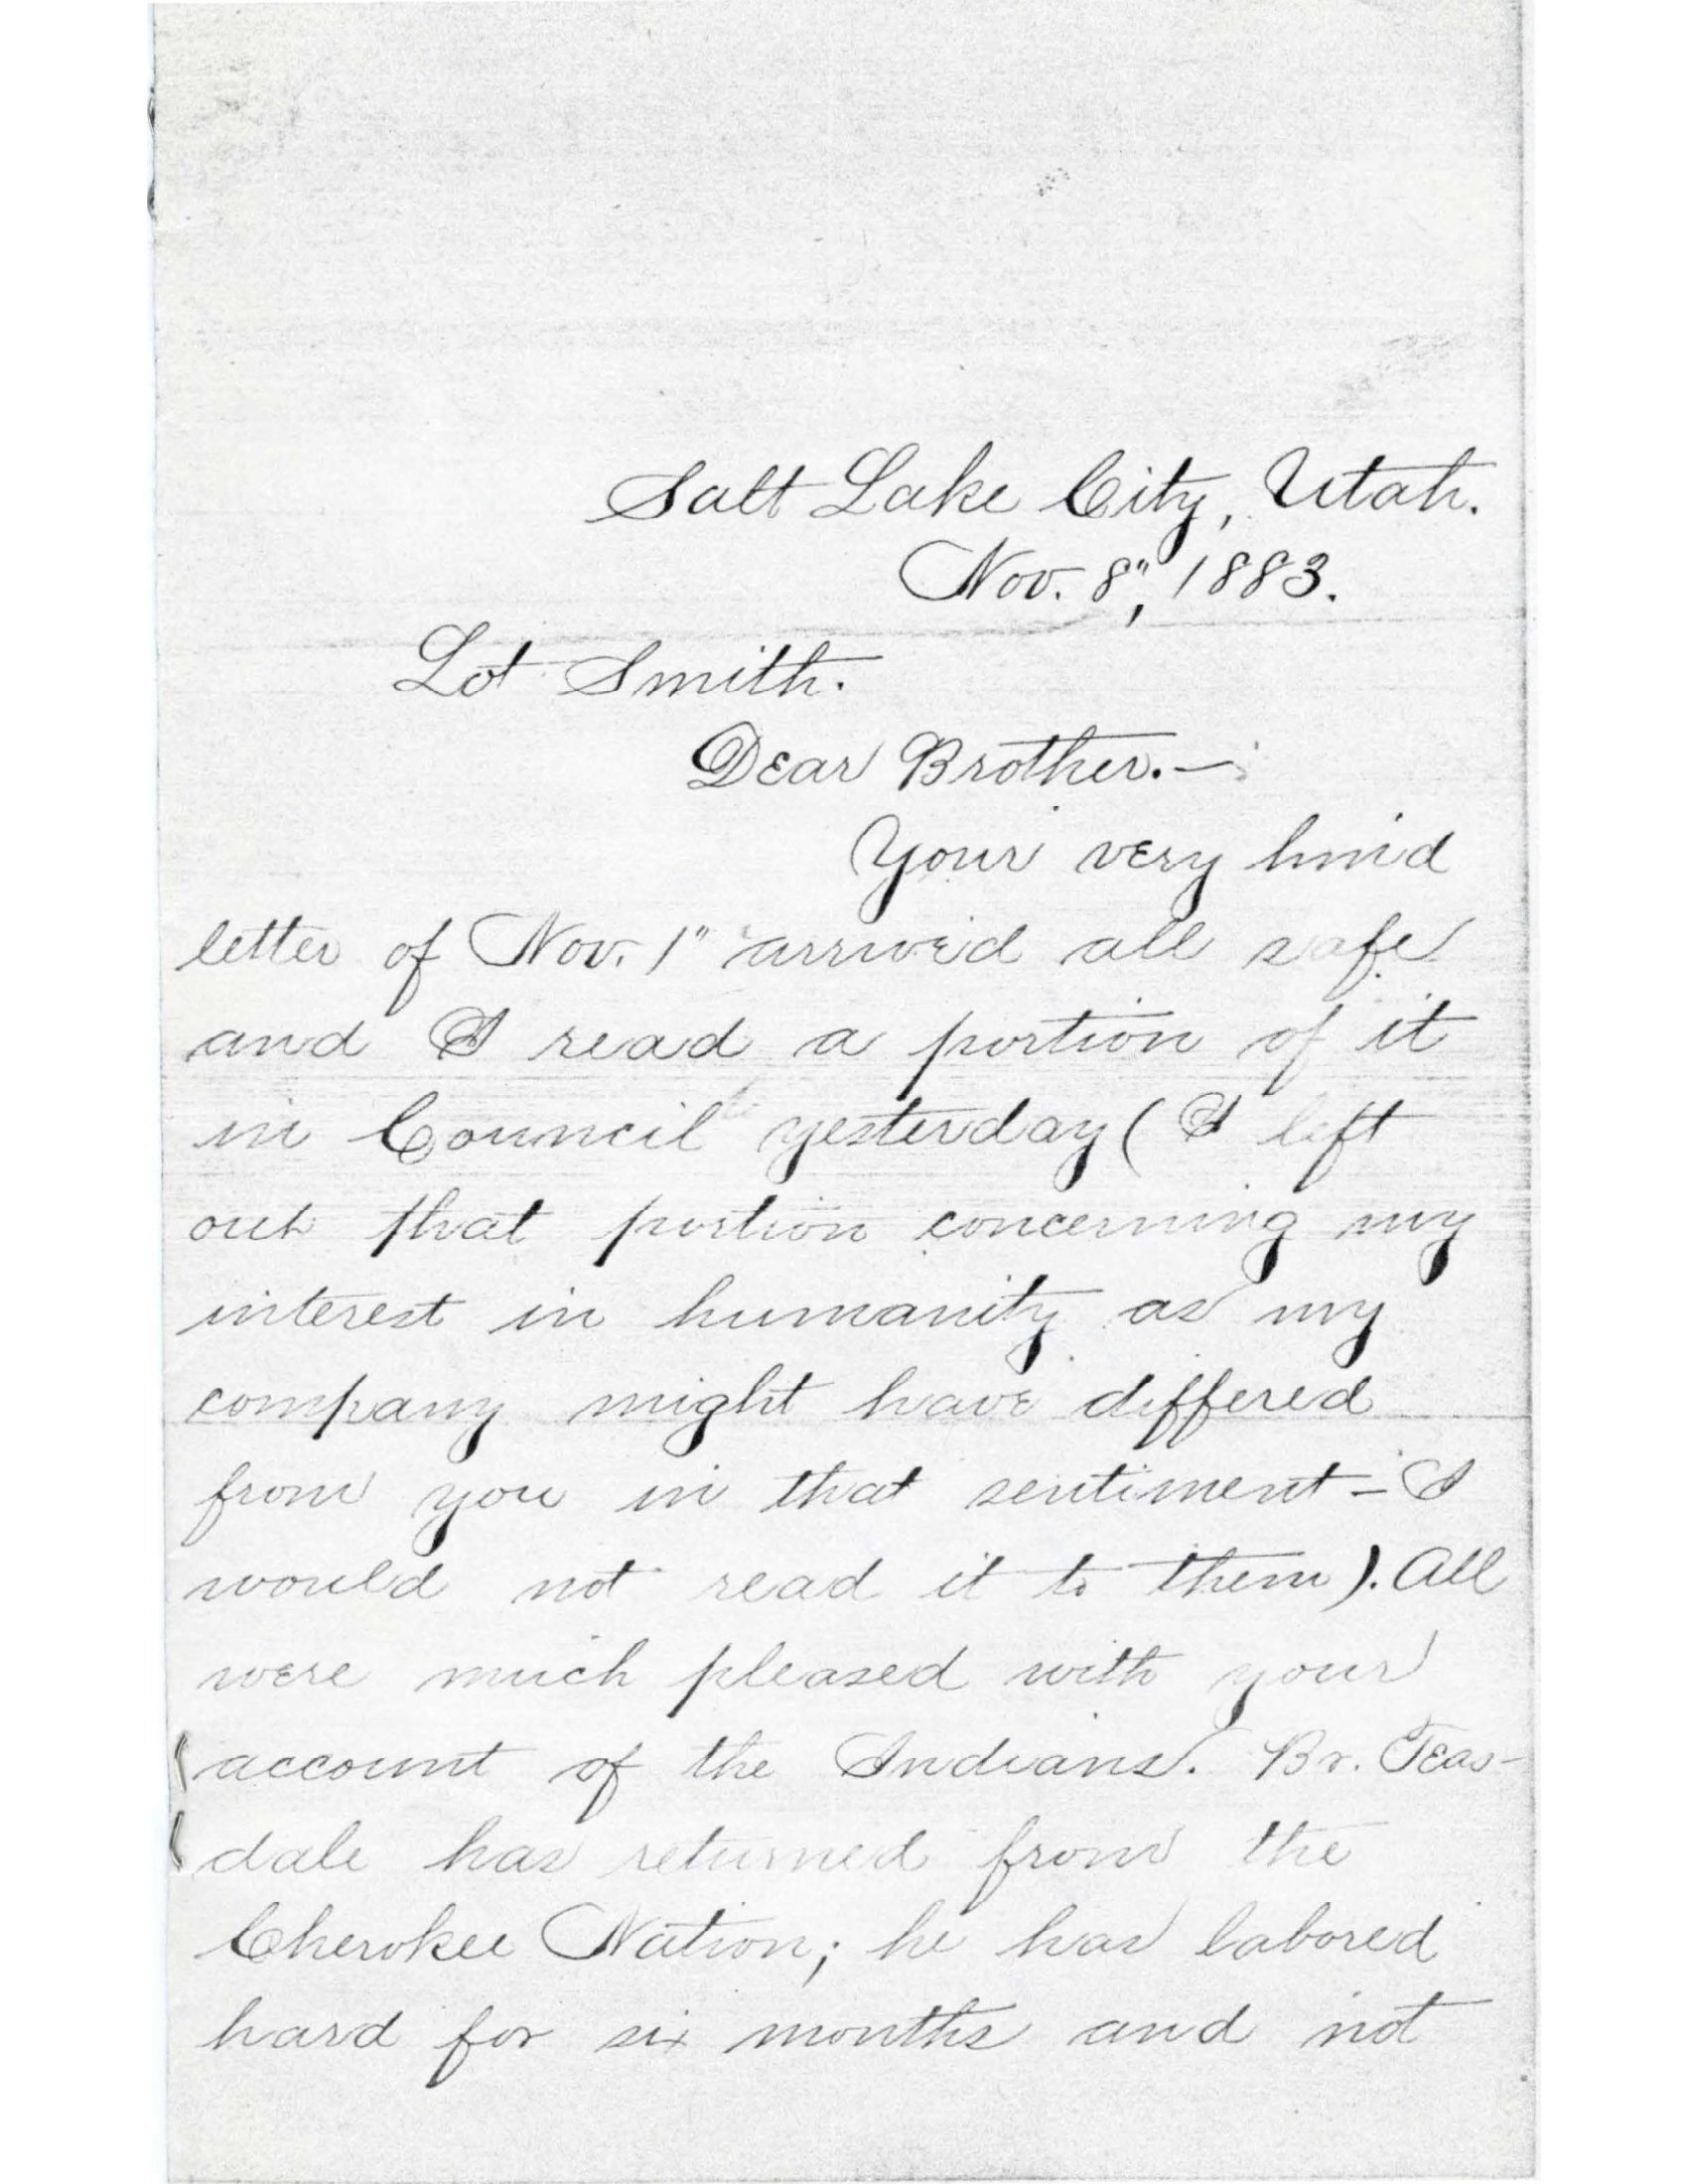 Salt Lake City, Utah.
Nov. 8", 1883.
Lot Smith.
Dear Brother.—
Your very kind
letter of Nov. 1" arrived all safe
and I read a portion of it
in Council yesterday ( I left
out that portion concerning my
interest in humanity as my
company might have differed
from you in that sentiment – I
would not read it to them ). All
were much pleased with your
account of the Indians. Br. Teas-
dale has returned from the
Cherokee Nation; he has labored
hard for six months and not